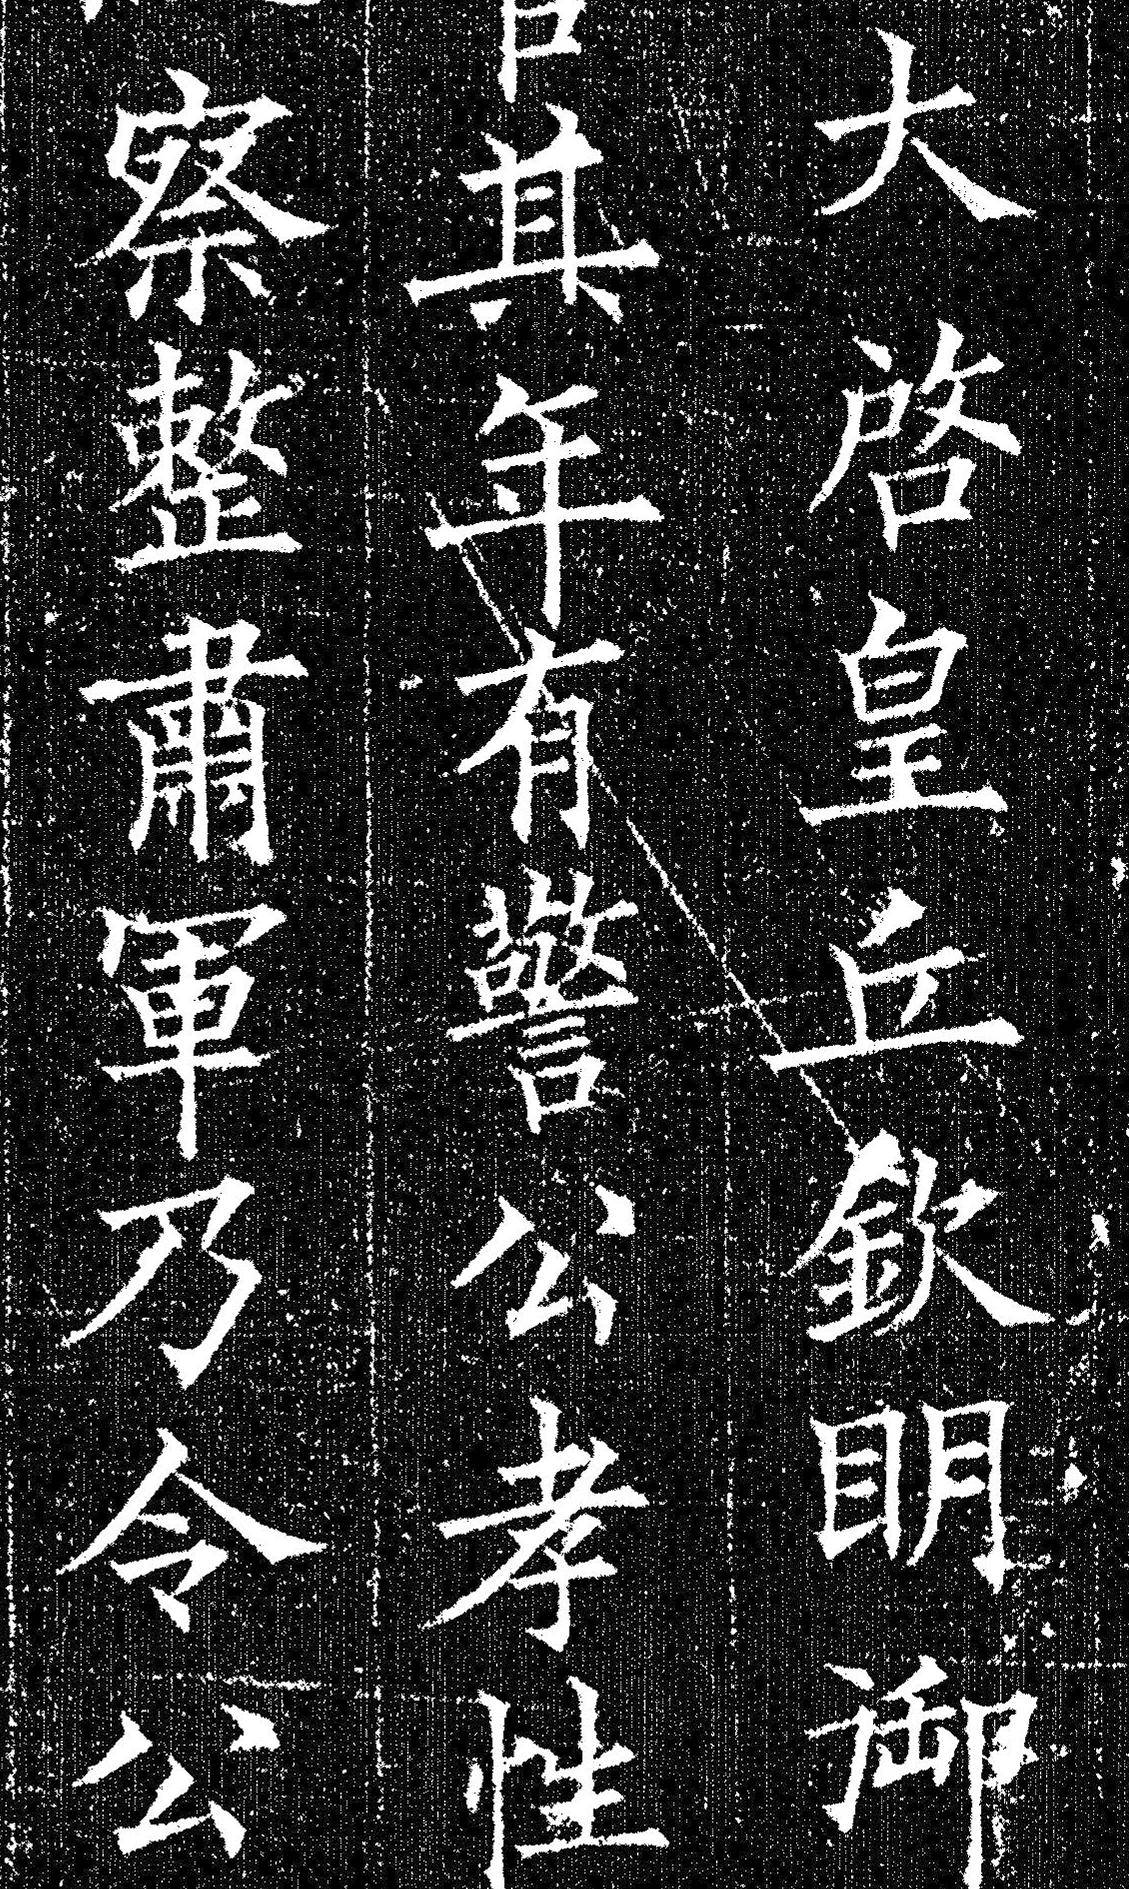 大啓皇丘欽明御
其年有警公孝性
察整肅軍乃令公